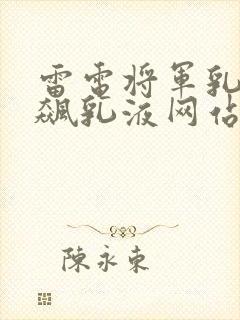 雷电将军乳
飙乳液网站
陳永東